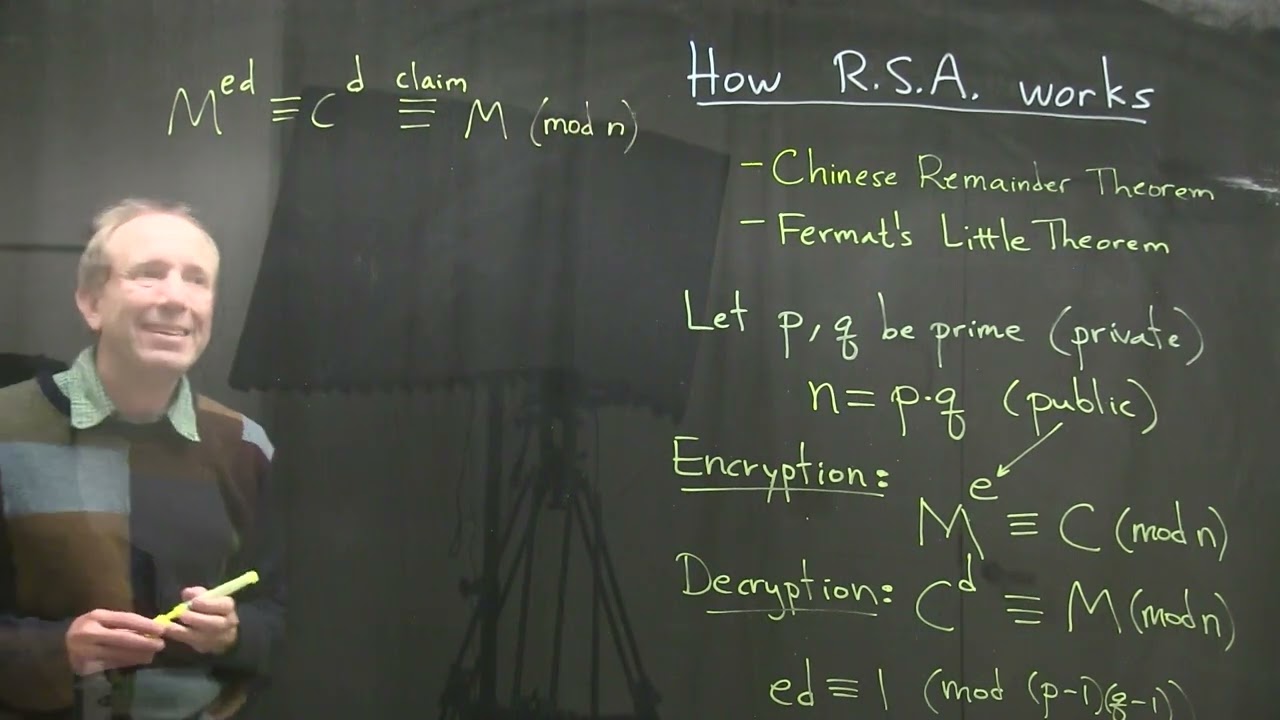 M^ed ≡ C^d ≡ M (mod n)
claim
How R.S.A. works
- Chinese Remainder Theorem
- Fermat's Little Theorem
Let p, q be prime (private)
n = p·q (public)
Encryption:
M^e ≡ C (mod n)
Decryption: C^d ≡ M (mod n)
ed ≡ 1 (mod (p-1)(q-1))